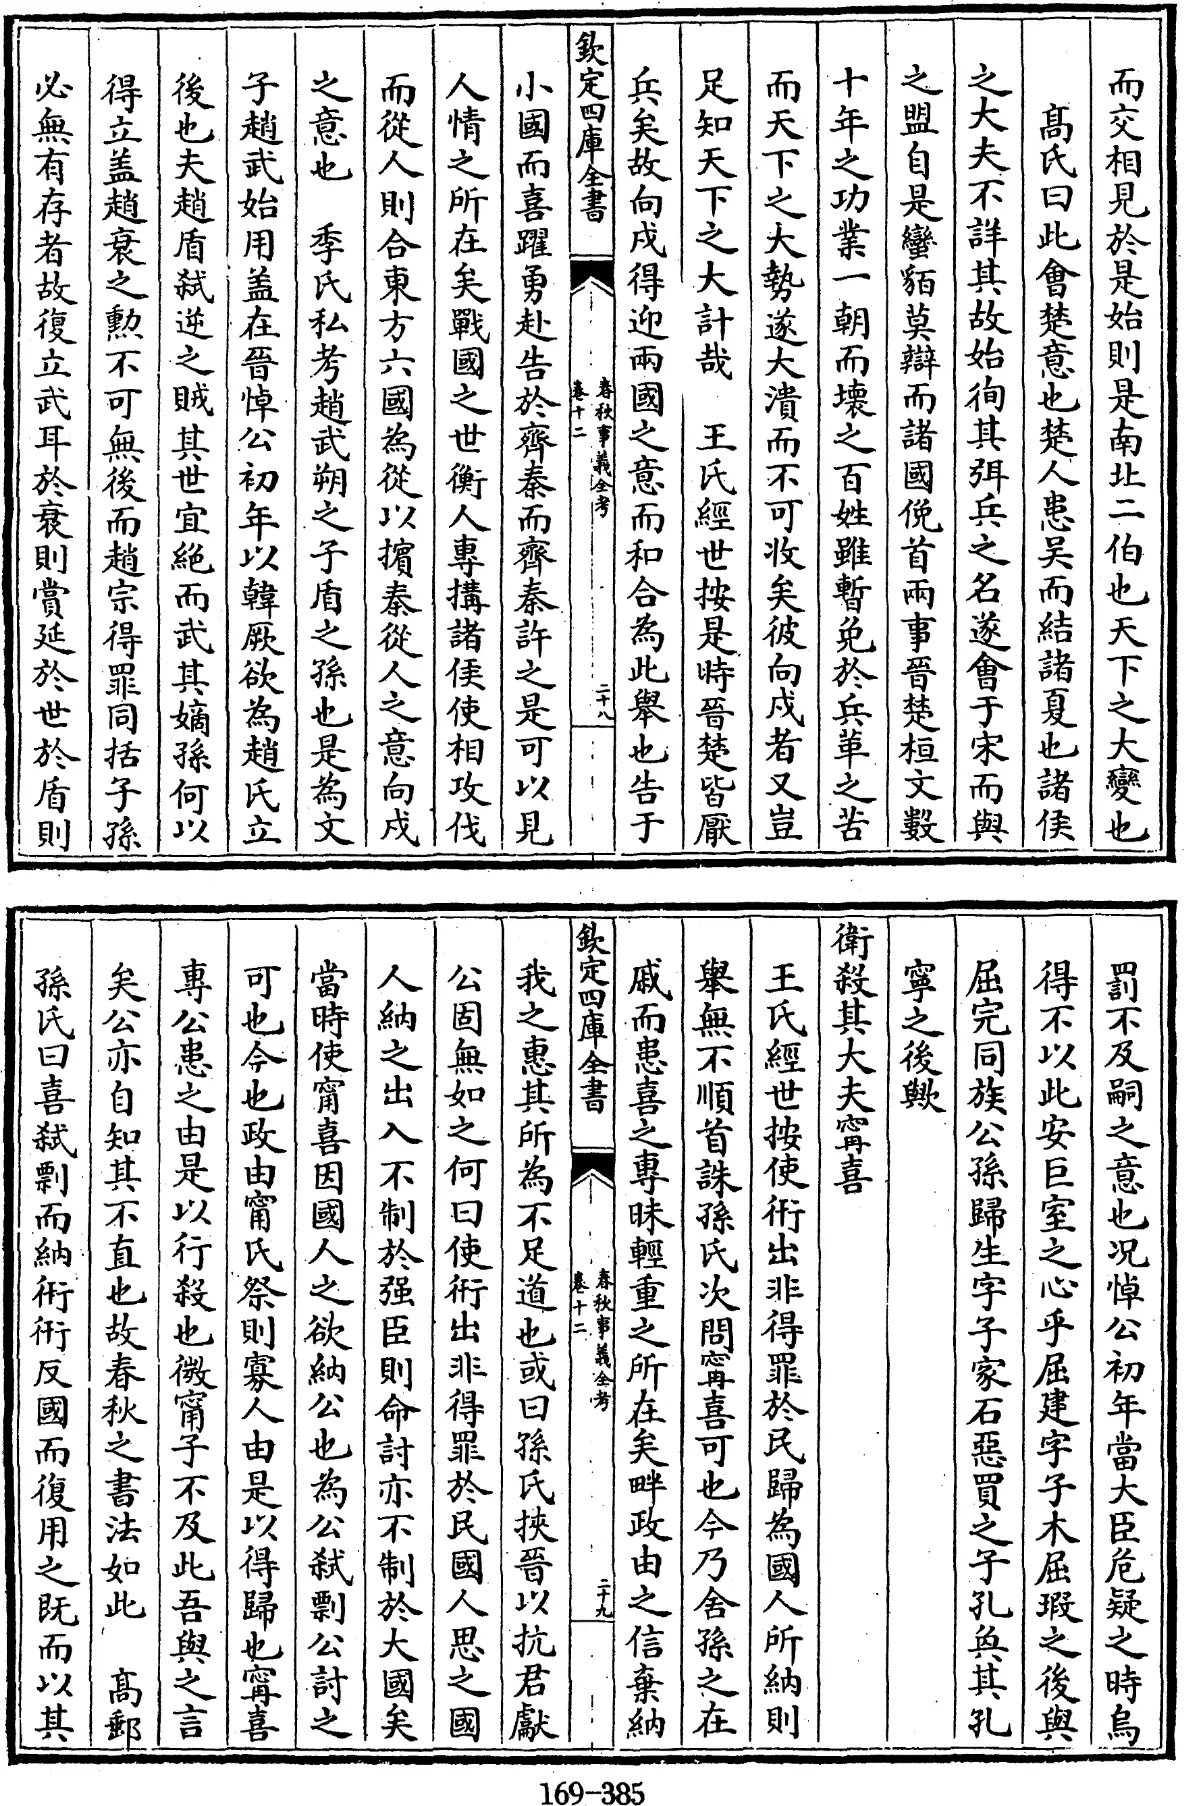 而交相見於是始則是南北二伯也天下之大變也
髙氏曰此㑹楚意也楚人患吴而結諸夏也諸侯
之大夫不詳其故始徇其弭兵之名遂㑹于宋而與
之盟自是蠻貊莫辯而諸國俛首兩事晉楚桓文數
十年之功業一朝而壊之百姓雖暫免於兵革之苦
而天下之大勢遂大潰而不可收矣彼向戌者又豈
足知天下之大計哉　王氏經世按是時晉楚皆厭
兵矣故向戌得迎兩國之意而和合為此舉也告于
欽定四庫全書
春秋事義全考
卷十二
二十八
小國而喜躍勇赴告於齊秦而齊秦許之是可以見
人情之所在矣戰國之世衡人專搆諸侯使相攻伐
而從人則合東方六國為從以擯秦從人之意向戌
之意也　季氏私考趙武朔之子盾之孫也是為文
子趙武始用盖在晉悼公初年以韓厥欲為趙氏立
後也夫趙盾弑逆之賊其世宜絶而武其嫡孫何以
得立盖趙衰之勲不可無後而趙宗得罪同括子孫
必無有存者故復立武耳於衰則賞延於世於盾則
罰不及嗣之意也况悼公初年當大臣危疑之時烏
得不以此安巨室之心乎屈建字子木屈瑕之後與
屈完同族公孫歸生字子家石惡買之子孔奐其孔
寧之後歟
衛殺其大夫甯喜
王氏經世按使衎出非得罪於民歸為國人所納則
舉無不順首誅孫氏次問甯喜可也今乃舍孫之在
戚而患喜之專昧輕重之所在矣畔政由之信棄納
欽定四庫全書
春秋事義全考
卷十二
二十九
我之惠其所為不足道也或曰孫氏挾晉以抗君獻
公固無如之何曰使衎出非得罪於民國人思之國
人納之出入不制於强臣則命討亦不制於大國矣
當時使甯喜因國人之欲納公也為公弑剽公討之
可也今也政由甯氏祭則寡人由是以得歸也甯喜
專公患之由是以行殺也微甯子不及此吾與之言
矣公亦自知其不直也故春秋之書法如此　髙郵
孫氏曰喜弑剽而納衎衎反國而復用之既而以其
169-385